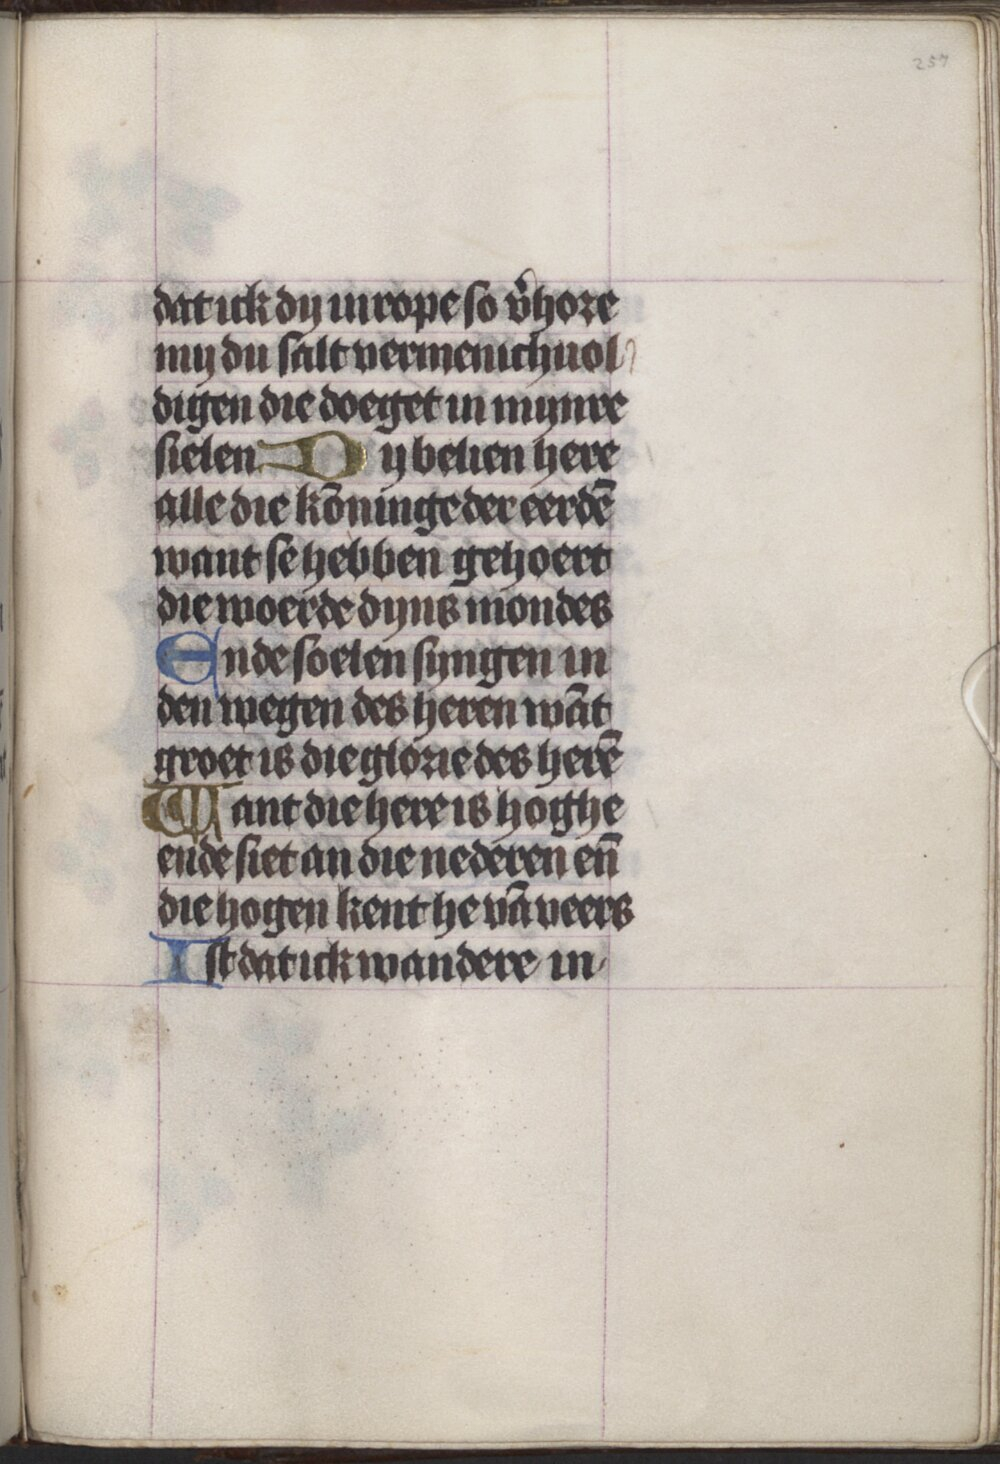 257
dat ick dy inrope so v̄hore
my du salt vermenichuol
digen die doeget in mynre
sielen Dy belien here
alle die kōninge der eerdē
want se hebben gehoert
die woerde dyns mondes
Ende soelen syngen in
den wegen des heren wāt
groet is die glorie des herē
Want die here is hoghe
ende siet an die nederen en̄
die hogen kent he vā veers
Ist dat ick wandere in